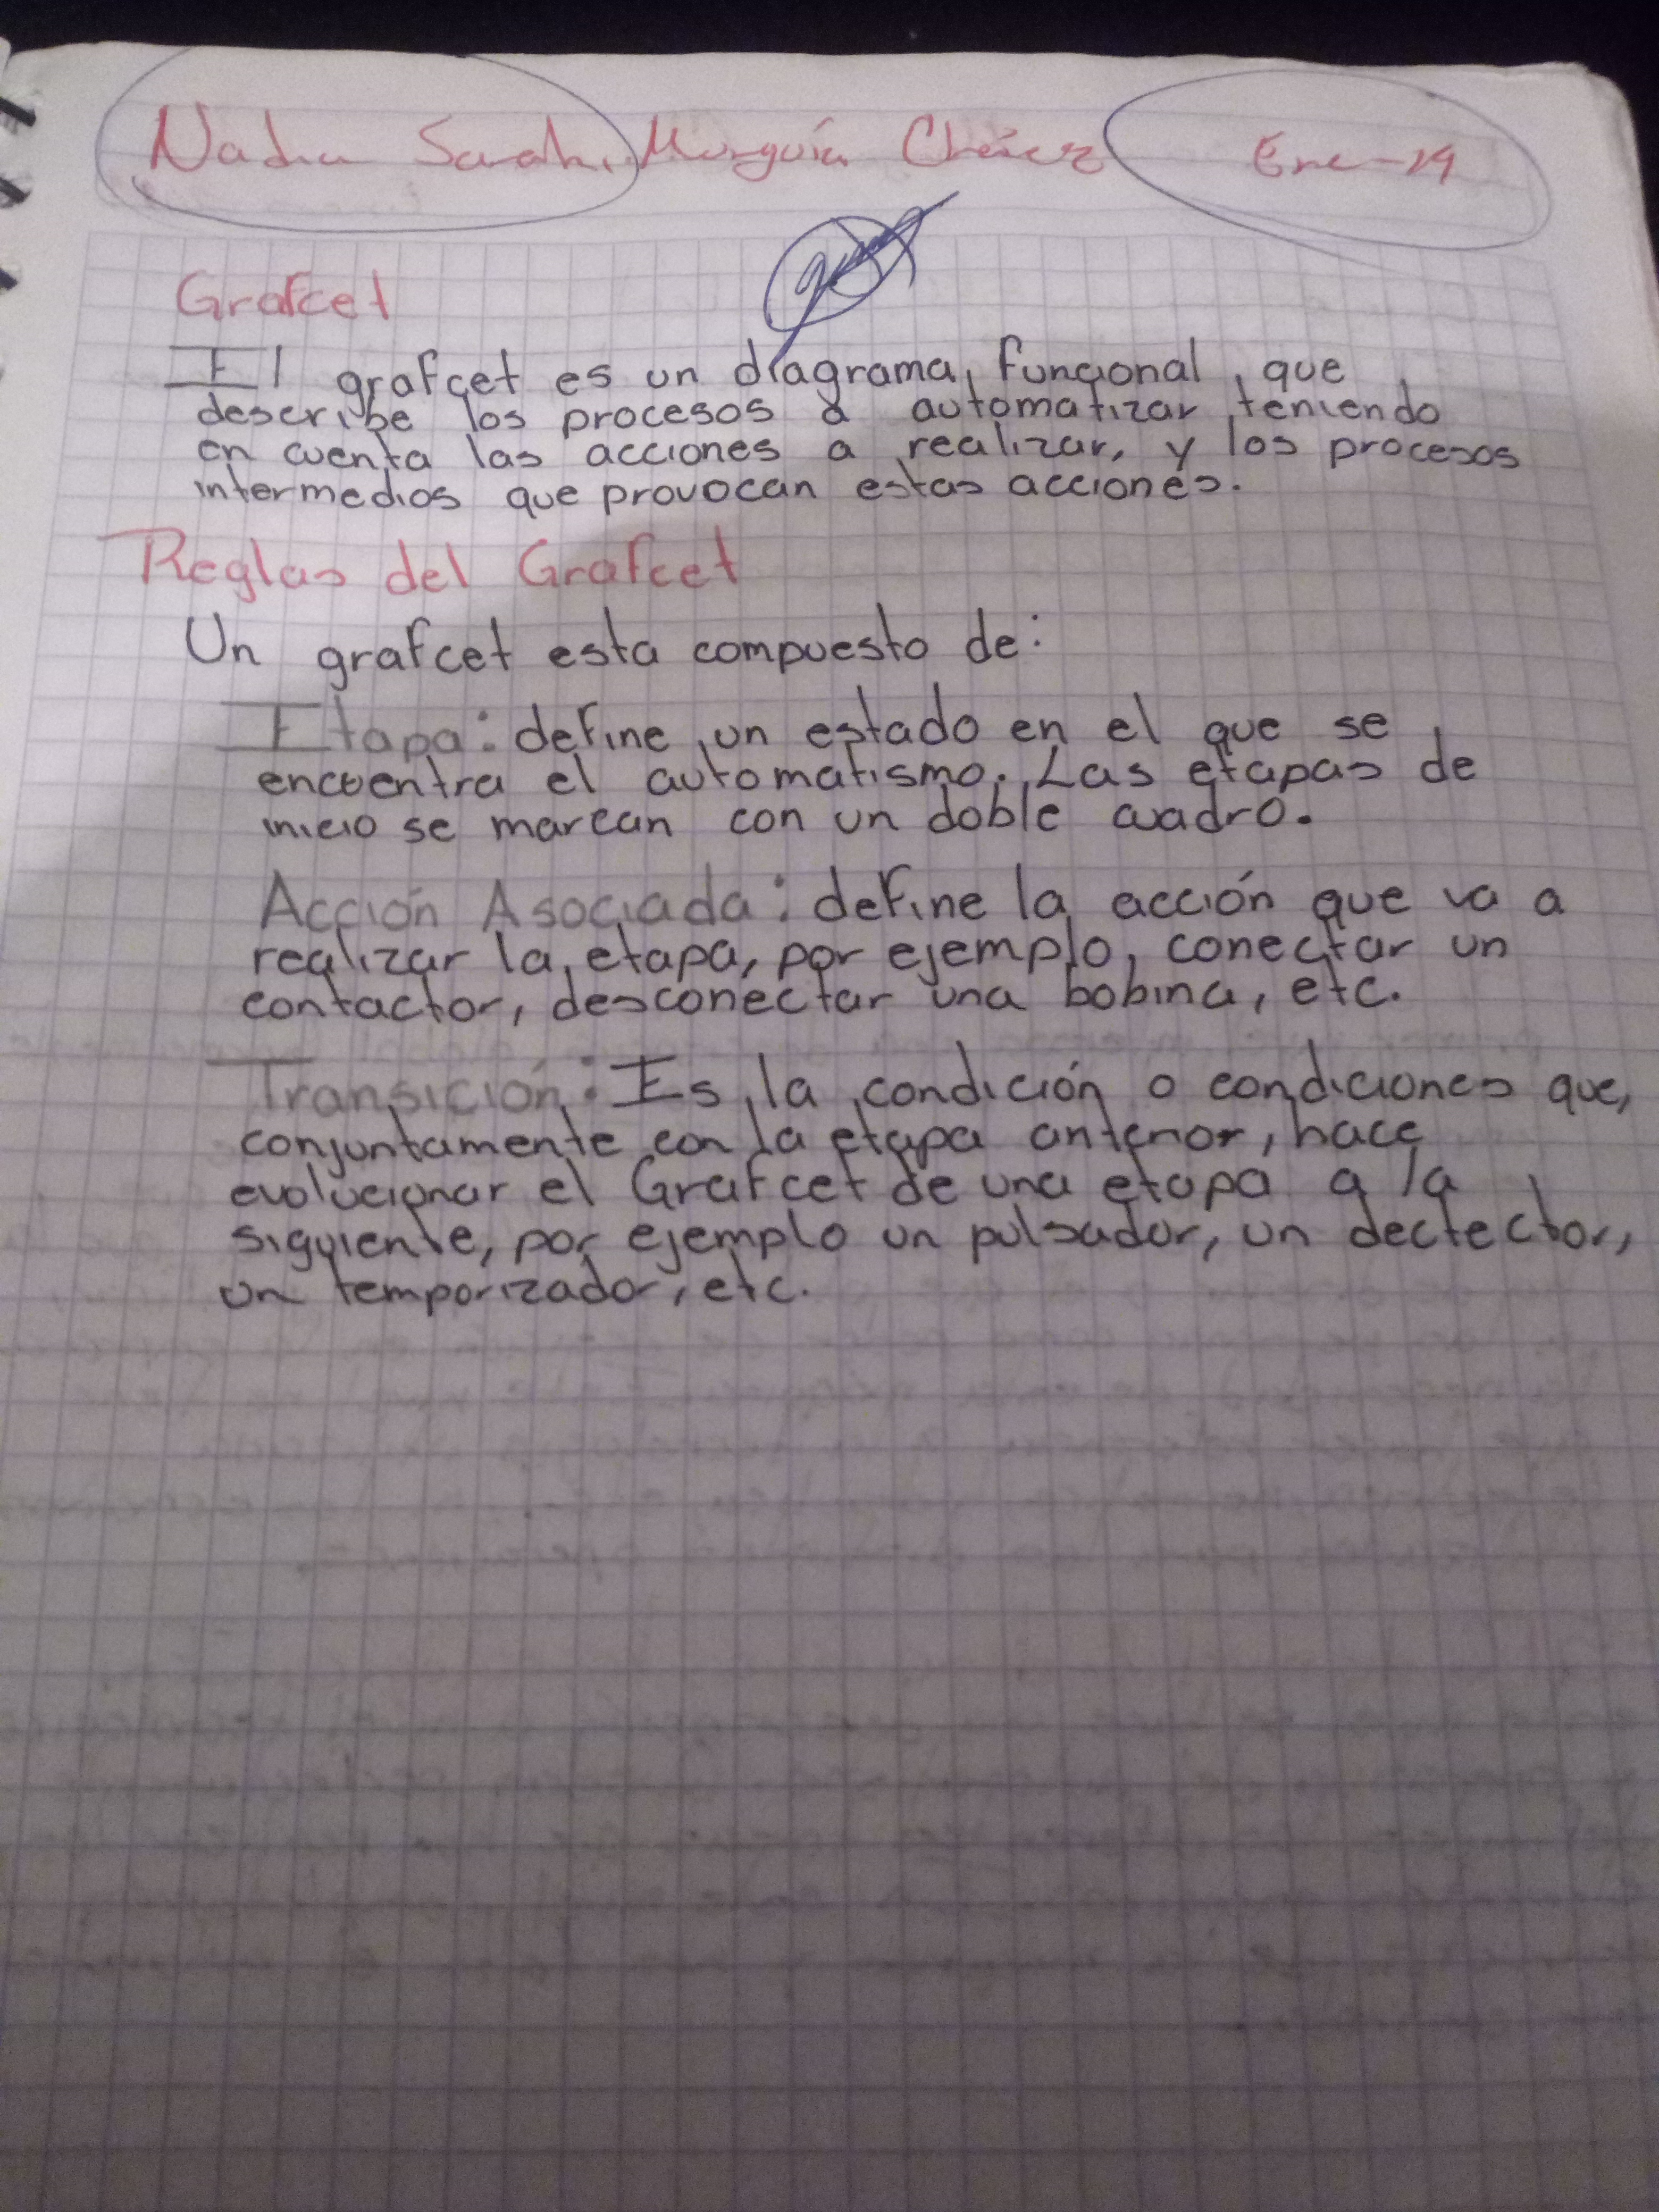 Nadia Sarahi Murguía Cháirez Ene-19
Grafcet
El grafcet es un diagrama funcional, que
describe los procesos a automatizar teniendo
en cuenta las acciones a realizar, y los procesos
intermedios que provocan estas acciones.
Reglas del Grafcet
Un grafcet esta compuesto de:
Etapa: define un estado en el que se
encuentra el automatismo. Las etapas de
inicio se marcan con un doble cuadro.
Acción Asociada: define la acción que va a
realizar la etapa, por ejemplo, conectar un
contactor, desconectar una bobina, etc.
Transición: Es la condición o condiciones que,
conjuntamente con la etapa anterior, hace
evolucionar el Grafcet de una etapa a la
siguiente, por ejemplo un pulsador, un dectector,
un temporizador, etc.